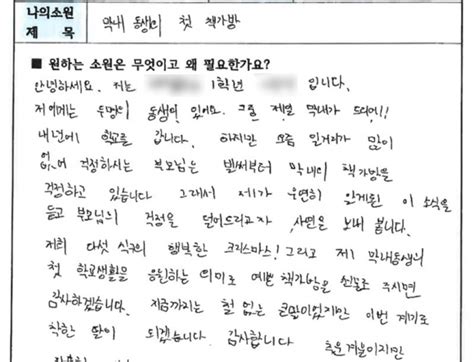 나의소원
제 목 막내 동생의 첫 책가방
■ 원하는 소원은 무엇이고 왜 필요한가요?
안녕하세요. 저는 1학년 입니다.
저에게는 두명의 동생이 있어요. 그중 제일 막내가 드디어!!
내년에 학교를 갑니다. 하지만 요즘 일거리가 많이
없어 걱정하시는 부모님은 벌써부터 막내의 책가방을
걱정하고 있습니다 그래서 제가 우연히 알게된 이 소식을
듣고 부모님의 걱정을 덜어드리고자 사연을 보내 봅니다.
저희 다섯 식구의 행복한 크리스마스! 그리고 제 막내동생의
첫 학교생활을 응원하는 의미로 예쁜 책가방을 선물로 주시면
감사하겠습니다. 지금까지는 철 없는 큰딸이었지만 이번 계기로
착한 딸이 되겠습니다. 감사합니다 추운 겨울이지만